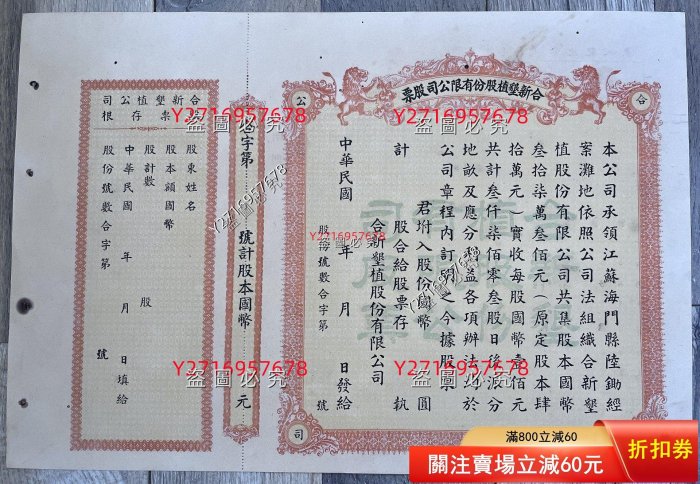 合新墾植股份有限公司股票
合
公
司
本公司承領江蘇海門縣陸鋤經
案灘地依照公司法組織合新墾
植股份有限公司共集股本國幣
叁拾柒萬叁佰元（原定股本肆
拾萬元）實收每股國幣壹佰元
共計叁仟柒佰零叁股日後派分
地畝及應分益各項辦法於
公司章程內訂之今據股票
君坿入股份國幣 圓
計 股合給股票存 執
合新墾植股份有限公司
中華民國 年 月 日發給
股號數合字第 號
字第 號計股本國幣 元
合新墾植公司
票存根
股東姓名
股本額國幣
股計數 股
中華民國 年 月 日填給
股份號數合字第 號
Y2716957678
盜圖必究
Y2716957678
盜圖必究
Y2716957678
盜圖必究
Y2716957678
盜圖必究
Y2716957678
盜圖必究
Y2716957678
盜圖必究
Y2716957678
盜圖必究
滿800立減60
關注賣場立減60元
折扣券